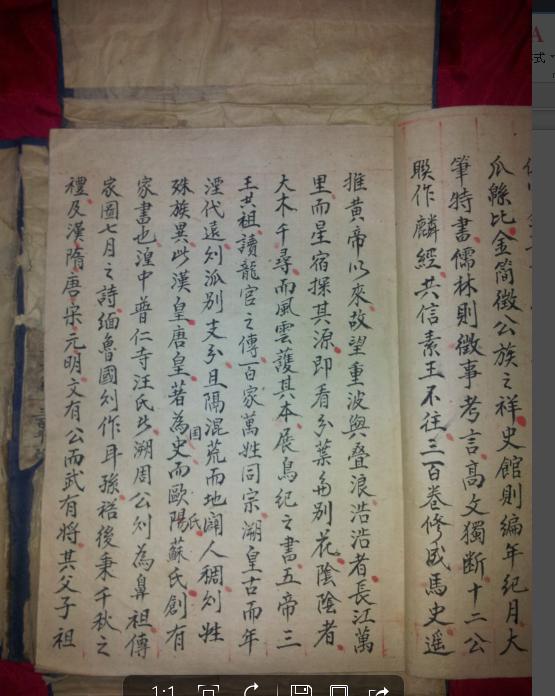 瓜緜比金简徵公族之祥史館則編年紀月大
筆特書儒林則徵事考言高文獨断十二公
睽作麟經共信素王不往三百卷修成馬史遥
推黄帝以來故望重波與叠浪浩浩者長江萬
里而星宿探其源即看分葉与别花陰陰者
大木千尋而風雲護其本展鳥紀之書五帝三
王共祖讀龍官之傳百家萬姓同宗溯皇古而年
湮代遠列派别支分且隔混荒而地闊人稠列姓
殊族異此漢皇唐皇著為國史而歐陽氏蘇氏創有
家書也湟中普仁寺汪氏些溯周公列為鼻祖傳
家圖七月之詩緬魯國列作耳孫袷後秉千秋之
禮及漢隋唐宋元明文有公而武有将其父子祖
1:1
式